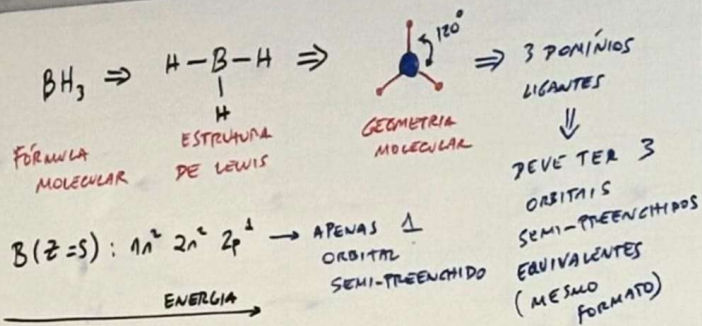 BH₃ ⇒ H-B-H ⇒ 120° ⇒ 3 DOMÍNIOS
LIGANTES
H
⇓
FÓRMULA
MOLECULAR
ESTRUTURA
DE LEWIS
GEOMETRIA
MOLECULAR
DEVE TER 3
ORBITAIS
SEMI-PREENCHIDOS
EQUIVALENTES
(MESMO
FORMATO)
B(Z=5): 1s² 2s² 2p¹ → APENAS 1
ORBITAL
SEMI-PREENCHIDO
ENERGIA